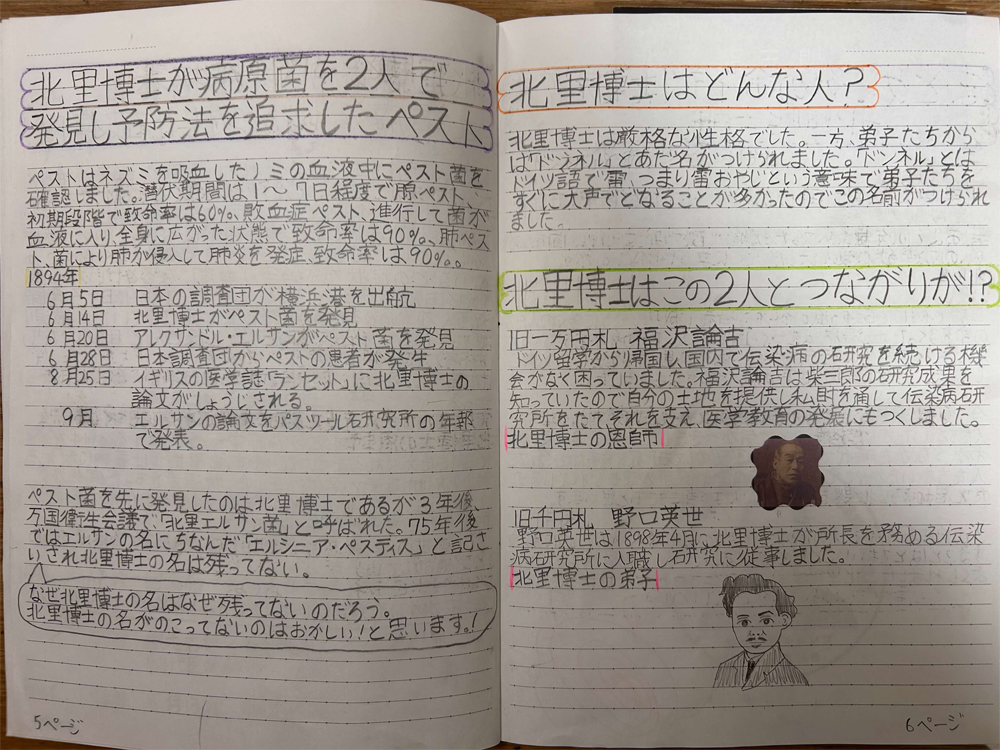 北里博士が病原菌を2人で
発見し予防法を追求したペスト
ペストはネズミを吸血したノミの血液中にペスト菌を
確認しました。潜伏期間は1〜7日程度で腺ペスト、
初期段階で致命率は60%、敗血症ペスト、進行して菌が
血液に入り、全身に広がった状態で致命率は90%、肺ペス
ト、菌により肺が侵入して肺炎を発症、致命率は90%。
1894年
6月5日 日本の調査団が横浜港を出航
6月14日 北里博士がペスト菌を発見
6月20日 アレクサンドル・エルサンがペスト菌を発見
6月28日 日本調査団からペストの患者が発生
8月25日 イギリスの医学誌「ランセット」に北里博士の
論文がしょうじされる。
9月 エルサンの論文をパスツール研究所の年報
で発表。
ペスト菌を先に発見したのは北里博士であるが3年後、
万国衛生会議で、「北里エルサン菌」と呼ばれた。75年後
ではエルサンの名にちなんだ「エルシニア・ペスティス」と記さ
れ北里博士の名は残ってない。
なぜ北里博士の名はなぜ残ってないのだろう。
北里博士の名がのこってないのはおかしい!と思います。!
5ページ
北里博士はどんな人?
北里博士は厳格な性格でした。一方、弟子たちから
は「ドンネル」とあだ名がつけられました。「ドンネル」とは
ドイツ語で雷、つまり雷おやじという意味で弟子たちを
すぐに大声でどなることが多かったのでこの名前がつけられ
ました。
北里博士はこの2人とつながりが!?
旧一万円札 福沢論吉
ドイツ留学から帰国し国内で伝染病の研究を続ける機
会がなく困っていました。福沢論吉は柴三郎の研究成果を
知っていたので自分の土地を提供し私財を通して伝染病研
究所をたて、それを支え、医学教育の発展にもつくしました。
北里博士の恩師
旧千円札 野口英世
野口英世は1898年4月に北里博士が所長を務める伝染
病研究所に入職し研究に従事しました。
北里博士の弟子
6ページ